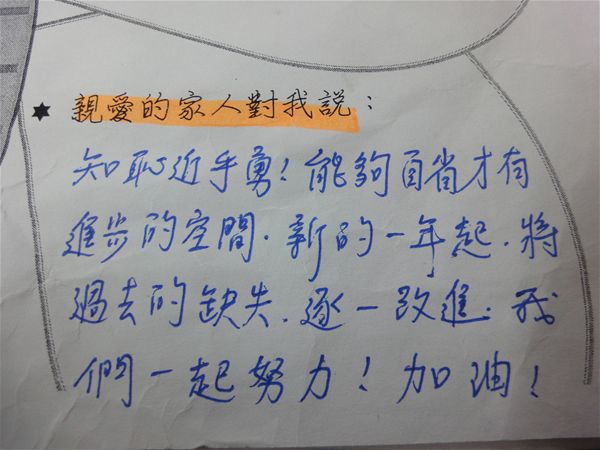 ★ 親愛的家人對我說：
知恥近乎勇！能夠自省才有
進步的空間．新的一年起．將
過去的缺失．逐一改進．我
們一起努力！加油！